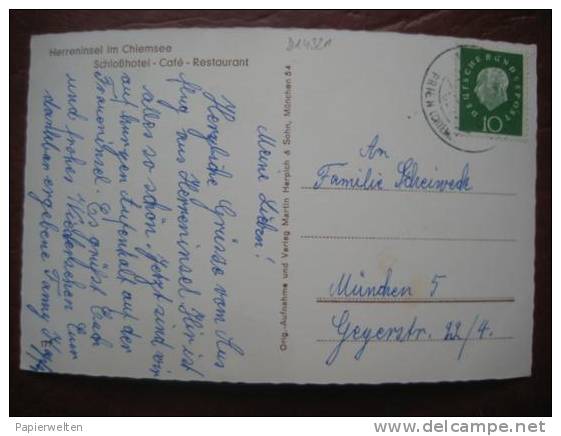 Herreninsel im Chiemsee
Schloßhotel - Café - Restaurant
D1432M
Meine Lieben!
Herzliche Grüsse vom Aus
flug aus Herreninsel. Hir ist
alles so schön. Jetzt sind wir
auf kurzen Aufenhalt auf der
Fraueninsel. Es grüsst Euch
und frohes Wiedersehen Eure
dankbar ergebene Fanny
Orig.-Aufnahme und Verlag Martin Herpich & Sohn, München 54
PRIEN
DEUTSCHE BUNDESPOST
10
An
Familie Scheiweck
München 5
Geyerstr. 22/4.
Papierwelten
delcampe.net